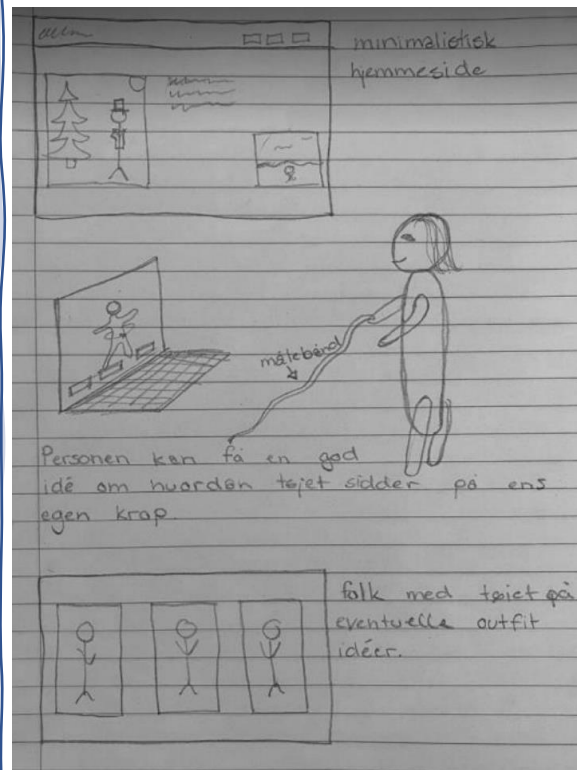 minimalistisk
hjemmeside
målebånd
Personen kan få en god
idé om hvordan tøjet sidder på ens
egen krop.
folk med tøjet på
eventuelle outfit
idéer.